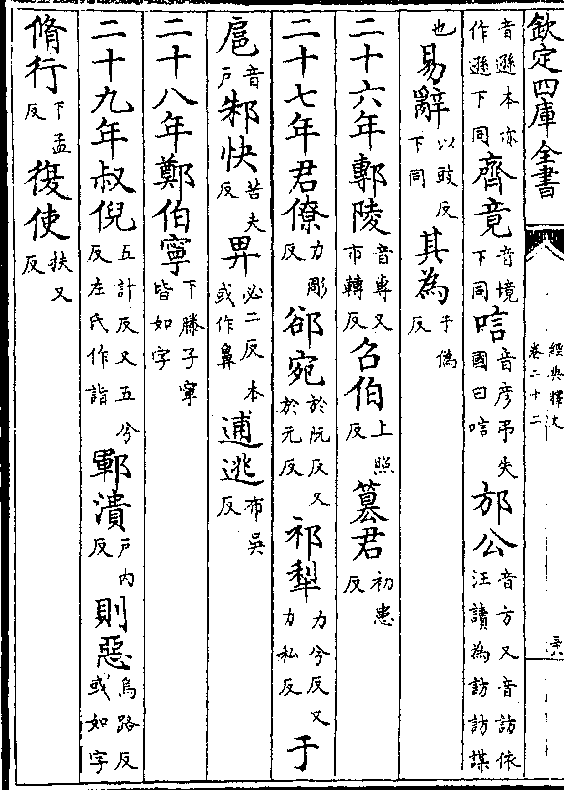 欽定四庫全書
經典釋文
卷二十二
音遜本亦作遜下同齊竟音境下同唁音彦弔失國曰唁邡公音方又音訪依汪讀為訪訪謀
也易辭以豉反下同其為于偽反
二十六年鄟陵音專又市轉反召伯上照反篡君初患反
二十七年君僚力彫反郤宛於阮反又於元反祁犁力兮反又力私反于
扈音户邾快苦夫反畀必二反本或作鼻逋逃布吳反
二十八年鄭伯寧下滕子寧皆如字
二十九年叔倪五計反又五兮反左氏作詣鄆潰户内反則惡烏路反或如字
脩行下孟反復使扶又反